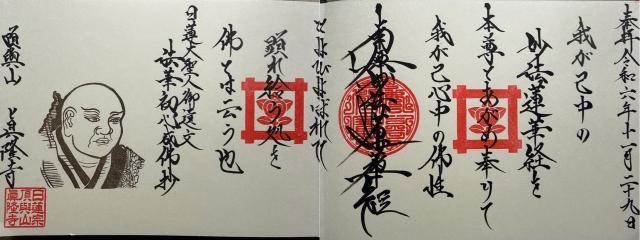 奉拝 令和六年十一月二十九日
我が己中の
妙法蓮華経を
本尊とあがめ奉りて
我が己心中の佛性
南無妙法蓮華経
とよびよばれて
顕れ給う処を
佛とは云う也
日蓮大聖人御遺文
法華初心成佛抄
日蓮宗